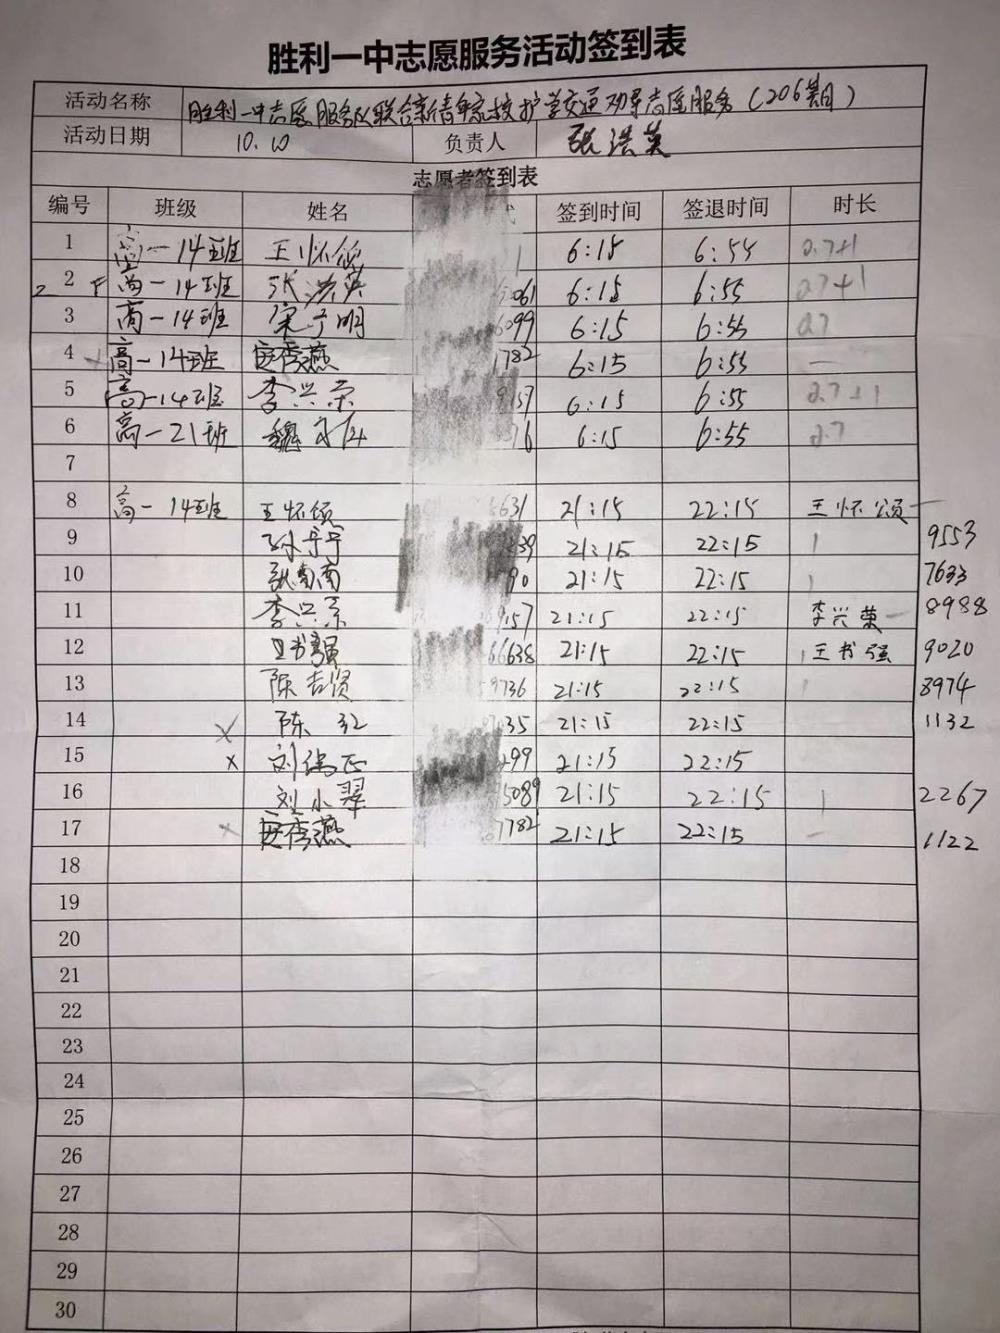 胜利一中志愿服务活动签到表
活动名称 胜利一中志愿服务队联合新青年家校护学交通劝导志愿服务（206期）
活动日期 10.10 负责人 张洪英
志愿者签到表
编号 班级 姓名 签到时间 签退时间 时长
1 高一14班 王怀颂 1 6:15 6:54 0.7+1
2 2 高一14班 张洪英 061 6:15 6:55 0.7+1
3 高一14班 宋子明 6099 6:15 6:55 0.7
4 高一14班 秀燕 1782 6:15 6:55 —
5 高一14班 李兴荣 157 6:15 6:55 0.7+1
6 高一21班 魏 76 6:15 6:55 0.7
7
8 高一14班 王怀颂 6631 21:15 22:15 王怀颂
9 孙 39 21:15 22:15 1 9553
10 南南 90 21:15 22:15 1 7633
11 李兴荣 9157 21:15 22:15 李兴荣 8988
12 王书强 66638 21:15 22:15 1 王书强 9020
13 陈吉贤 59736 21:15 22:15 1 8974
14 × 陈红 35 21:15 22:15 1132
15 × 刘 299 21:15 22:15
16 刘小翠 5089 21:15 22:15 1 2267
17 × 秀燕 7782 21:15 22:15 — 1122
18
19
20
21
22
23
24
25
26
27
28
29
30